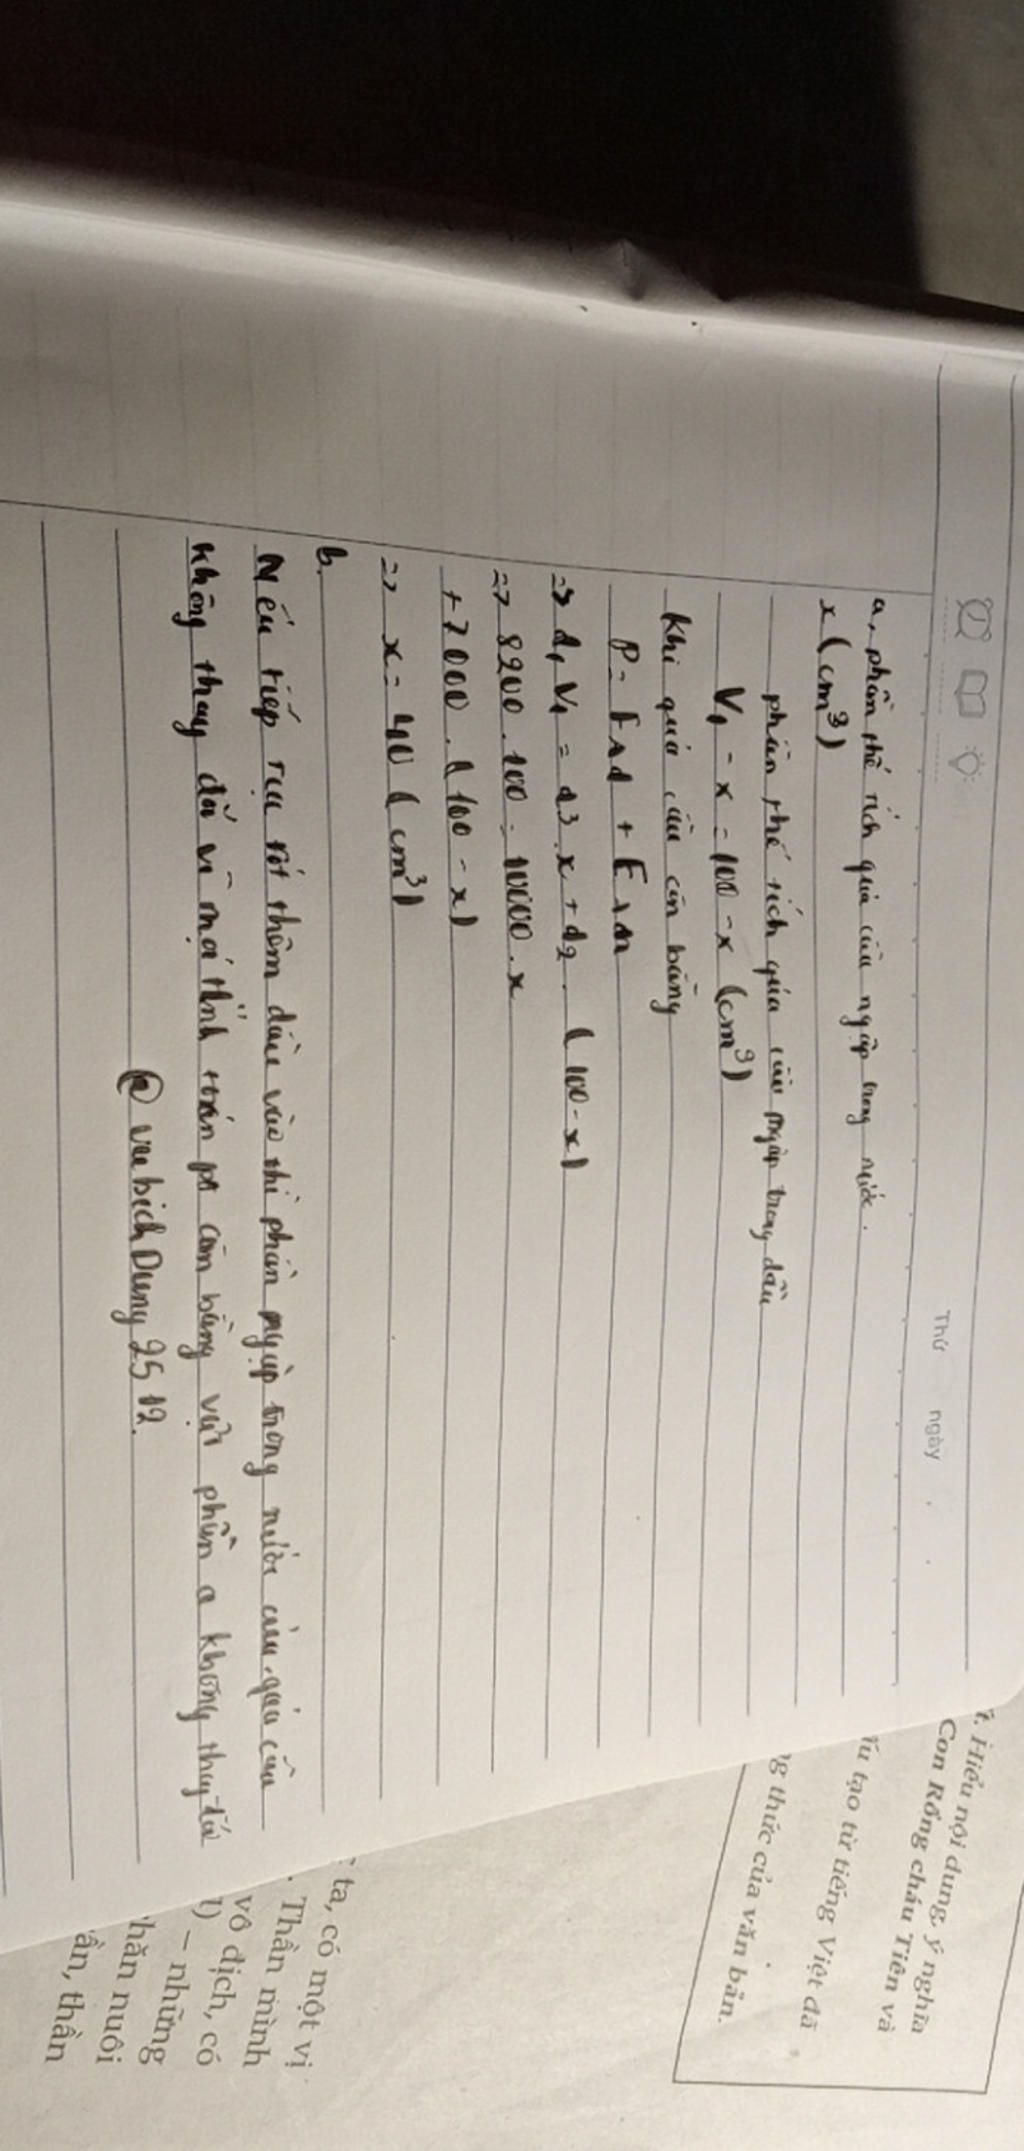 Thứ ngày
a, phần thể tích quả cầu ngập trong nước.
x (cm³)
phần thể tích quả cầu ngập trong dầu
V₁ - x = 100 - x (cm³)
khi quả cầu cân bằng
P = FAd + FAn
=> d₁V₁ = d3.x + d2.(100-x)
=> 8200.100 = 10000.x
+ 7000.(100-x)
=> x = 40 (cm³)
b.
Nếu tiếp tục rót thêm dầu vào thì phần ngập trong nước của quả cầu
không thay đổi vì mọi tính toán cân bằng vật phần a không thay đổi
@ vubichDung 2512.
. Hiểu nội dung, ý nghĩa
Con Rồng cháu Tiên và
tạo từ tiếng Việt đã
thức của văn bản.
ta, có một vị
. Thần mình
vô địch, có
– những
nuôi
thần